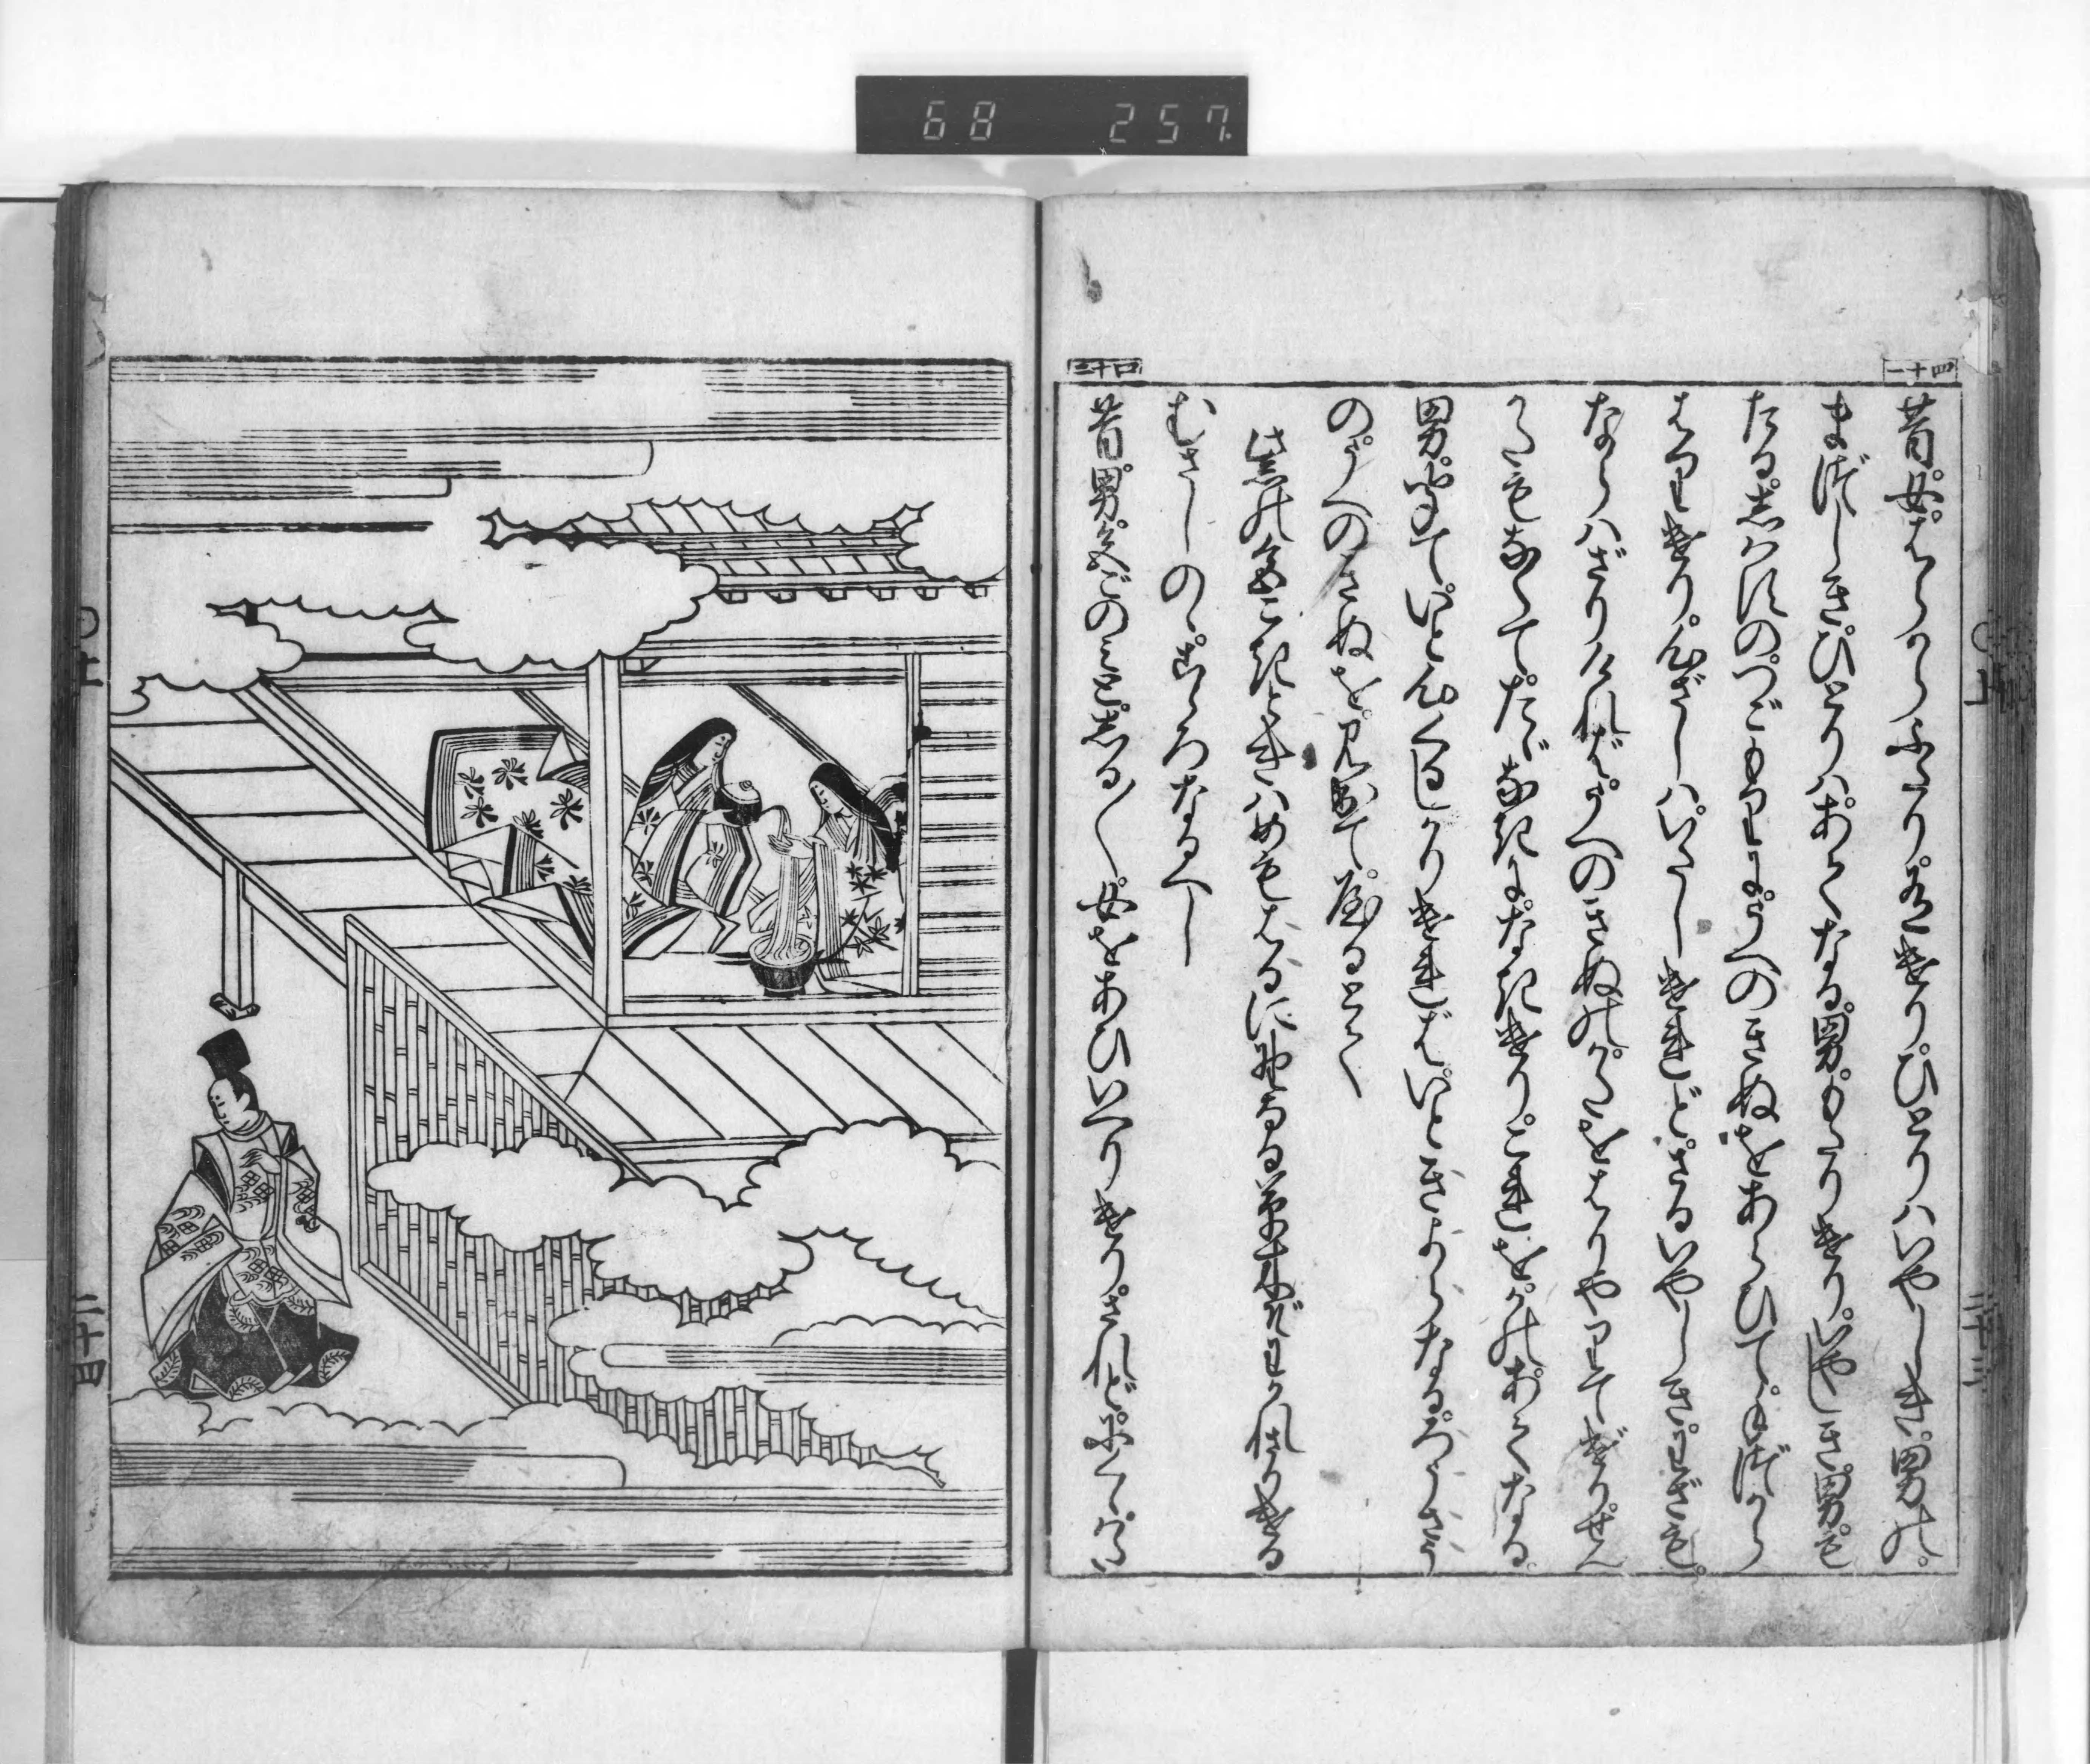 68 257.
四十一
昔。女。はらからふたり。有けり。ひとりハいやしき。男の。
まづしき。ひとりハ。あてなる。男。もたりけり。いやしき。男も
たる。しはすのつごもりに。うへのきぬをあらひて。手づから
はりけり。心ざしハ。いたしけれど。さるいやしき。わざも。
ならハざりければ。うへのきぬの。かたをはりやりてけり。せん
かたもなくて。たゞなきに。なきけり。これを。かの。あてなる。
男。聞て。いと心ぐるしかりければ。いときよらなる。ろうさう
のうへのきぬを。見出て。やるとて
紫の色こきときハめもはるに野なる草木ぞわかれざりける
むさしのゝ。こゝろなるべし
四十二
昔。男。色ごのみと。しる〳〵。女をあひいへりけり。されど。にくく。
二十四